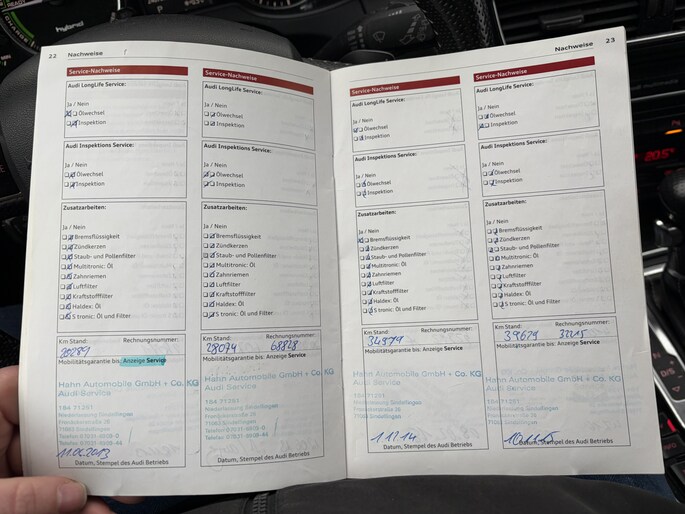 22 Nachweise
Service-Nachweise
Audi LongLife Service:
Ja / Nein
Ölwechsel
Inspektion
Audi Inspektions Service:
Ja / Nein
Ölwechsel
Inspektion
Zusatzarbeiten:
Ja / Nein
Bremsflüssigkeit
Zündkerzen
Staub- und Pollenfilter
Multitronic: Öl
Zahnriemen
Luftfilter
Kraftstofffilter
Haldex: Öl
S tronic: Öl und Filter
Km Stand: Rechnungsnummer:
Mobilitätsgarantie bis: Anzeige Service
Hahn Automobile GmbH + Co. KG
Audi Service
184 71251
Niederlassung Sindelfingen
71063 Sindelfingen
Datum, Stempel des Audi Betriebs
Service-Nachweise
Audi LongLife Service:
Ja / Nein
Ölwechsel
Inspektion
Audi Inspektions Service:
Ja / Nein
Ölwechsel
Inspektion
Zusatzarbeiten:
Ja / Nein
Bremsflüssigkeit
Zündkerzen
Staub- und Pollenfilter
Multitronic: Öl
Zahnriemen
Luftfilter
Kraftstofffilter
Haldex: Öl
S tronic: Öl und Filter
Km Stand: Rechnungsnummer:
28094 68828
Mobilitätsgarantie bis: Anzeige Service
Hahn Automobile GmbH + Co. KG
Audi Service
184 71251
Niederlassung Sindelfingen
71063 Sindelfingen
Datum, Stempel des Audi Betriebs
Nachweise 23
Service-Nachweise
Audi LongLife Service:
Ja / Nein
Ölwechsel
Inspektion
Audi Inspektions Service:
Ja / Nein
Ölwechsel
Inspektion
Zusatzarbeiten:
Ja / Nein
Bremsflüssigkeit
Zündkerzen
Staub- und Pollenfilter
Multitronic: Öl
Zahnriemen
Luftfilter
Kraftstofffilter
Haldex: Öl
S tronic: Öl und Filter
Km Stand: Rechnungsnummer:
34579
Mobilitätsgarantie bis: Anzeige Service
Hahn Automobile GmbH + Co. KG
Audi Service
184 71251
Niederlassung Sindelfingen
71063 Sindelfingen
Datum, Stempel des Audi Betriebs
Service-Nachweise
Audi LongLife Service:
Ja / Nein
Ölwechsel
Inspektion
Audi Inspektions Service:
Ja / Nein
Ölwechsel
Inspektion
Zusatzarbeiten:
Ja / Nein
Bremsflüssigkeit
Zündkerzen
Staub- und Pollenfilter
Multitronic: Öl
Zahnriemen
Luftfilter
Kraftstofffilter
Haldex: Öl
S tronic: Öl und Filter
Km Stand: Rechnungsnummer:
39679 33215
Mobilitätsgarantie bis: Anzeige Service
Hahn Automobile GmbH + Co. KG
Audi Service
184 71251
Niederlassung Sindelfingen
71063 Sindelfingen
Datum, Stempel des Audi Betriebs
hybrid
READY
20.5°